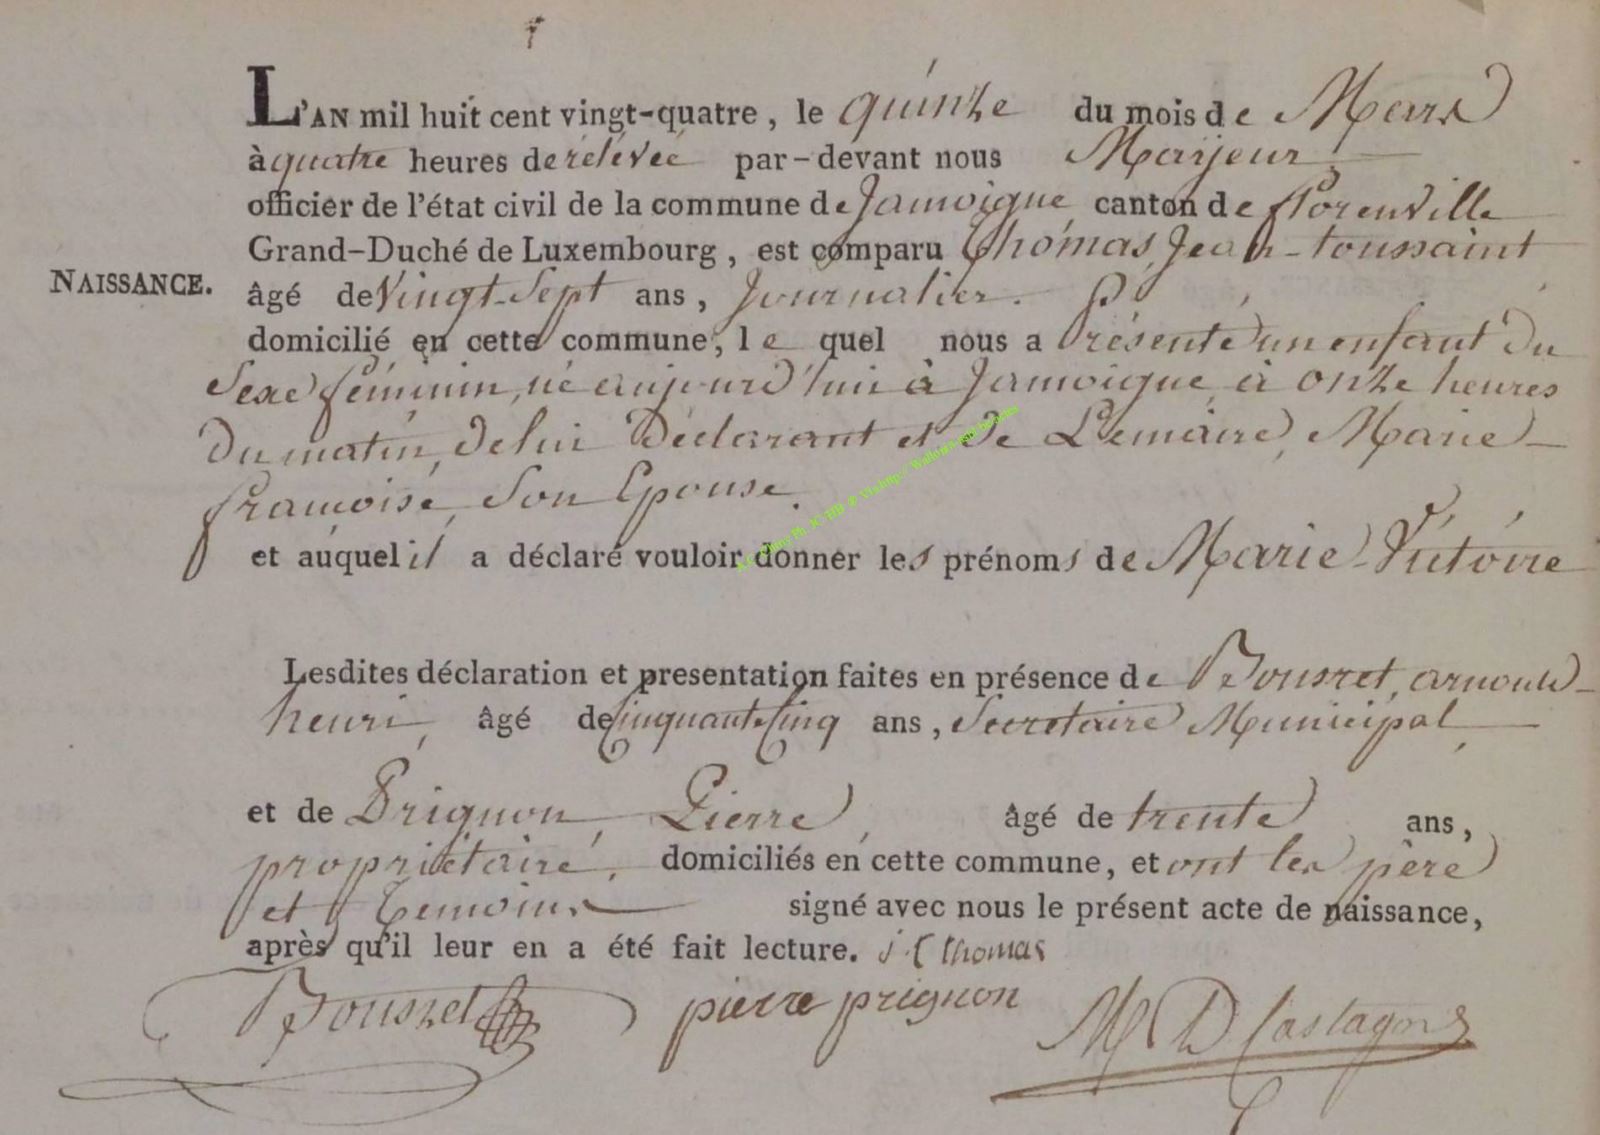 L'AN mil huit cent vingt-quatre, le quinze du mois de Mars
à quatre heures de rélévée par-devant nous Maÿeur
officier de l'état civil de la commune de Jamoigne, canton de florenville
Grand-Duché de Luxembourg, est comparu Thomas, Jean-toussaint
NAISSANCE.
âgé de vingt-sept ans, Journalier.
domicilié en cette commune, le quel nous a Présenté un enfant du
Sexe féminin, né aujourd'hui à Jamoigne, à onze heures
Du matin, de lui Déclarant et de Lemaire, Marie-
françoise, Son Epouse.
et auquel il a déclaré vouloir donner les prénoms de Marie-Victoire
Lesdites déclaration et presentation faites en présence de Bousret, arnould-
henri, âgé de Cinquante Cinq ans, Secretaire Municipal,
et de Prignon, Pierre, âgé de trente ans,
propriétaire, domiciliés en cette commune, et ont les père
et Temoins signé avec nous le présent acte de naissance,
après qu'il leur en a été fait lecture. j t thomas
Bousret pierre prignon M D Castagne